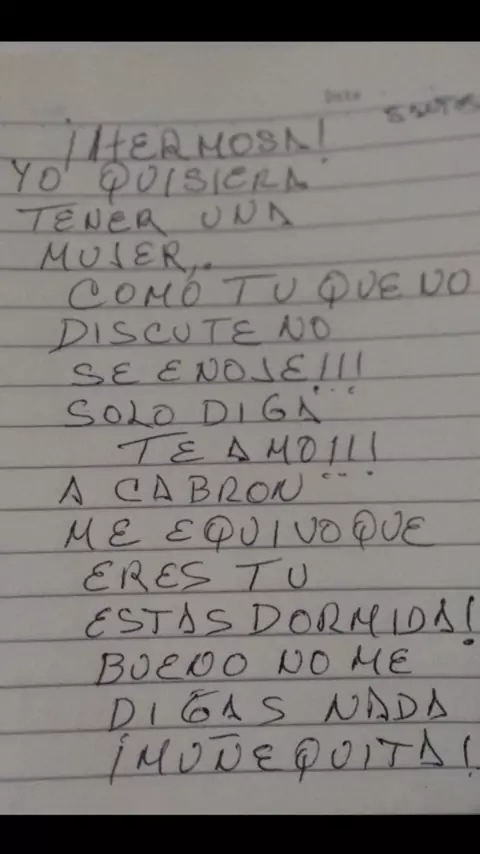 Date
¡HERMOSA!
YO QUISIERA
TENER UNA
MUJER,.
COMO TU QUE NO
DISCUTE NO
SE ENOJE!!!
SOLO DIGA
TE AMO!!!
A CABRON
ME EQUIVOQUE
ERES TU
ESTAS DORMIDA!
BUENO NO ME
DIGAS NADA
¡MUÑEQUITA!